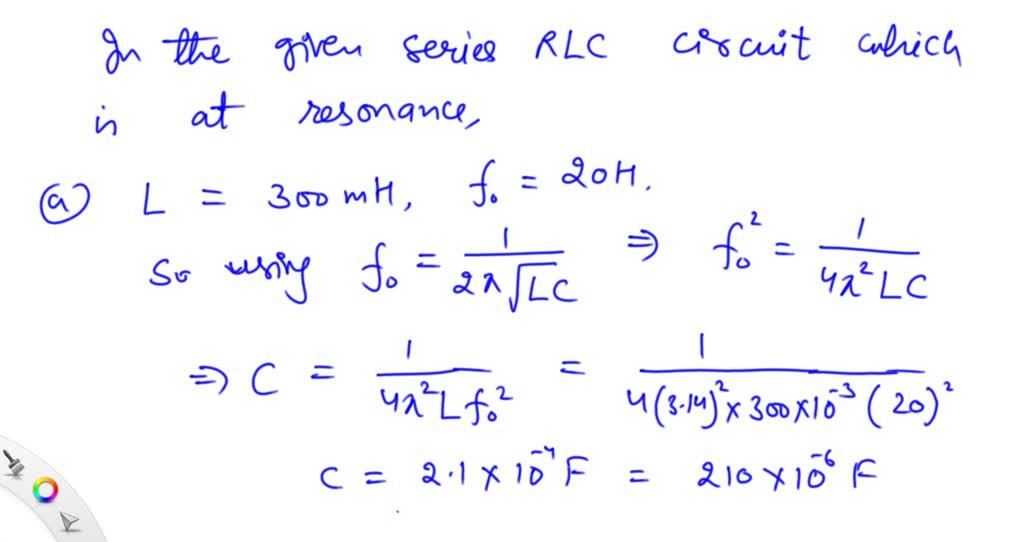 In the given series RLC circuit which
is at resonance,
(a) L = 300 mH, f₀ = 20H.
So using f₀ = 1/(2π√LC) ⇒ f₀² = 1/(4π²LC)
⇒ C = 1/(4π²Lf₀²) = 1/(4(3.14)²×300×10⁻³(20)²)
C = 2.1×10⁻⁴F = 210×10⁻⁶ F